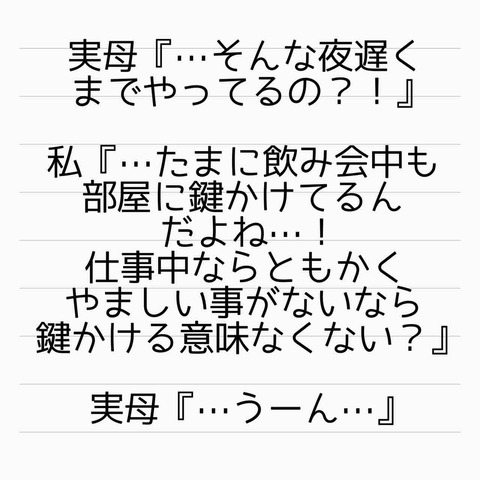 実母『…そんな夜遅く
までやってるの？！』
私『…たまに飲み会中も
部屋に鍵かけてるん
だよね…！
仕事中ならともかく
やましい事がないなら
鍵かける意味なくない？』
実母『…うーん…』